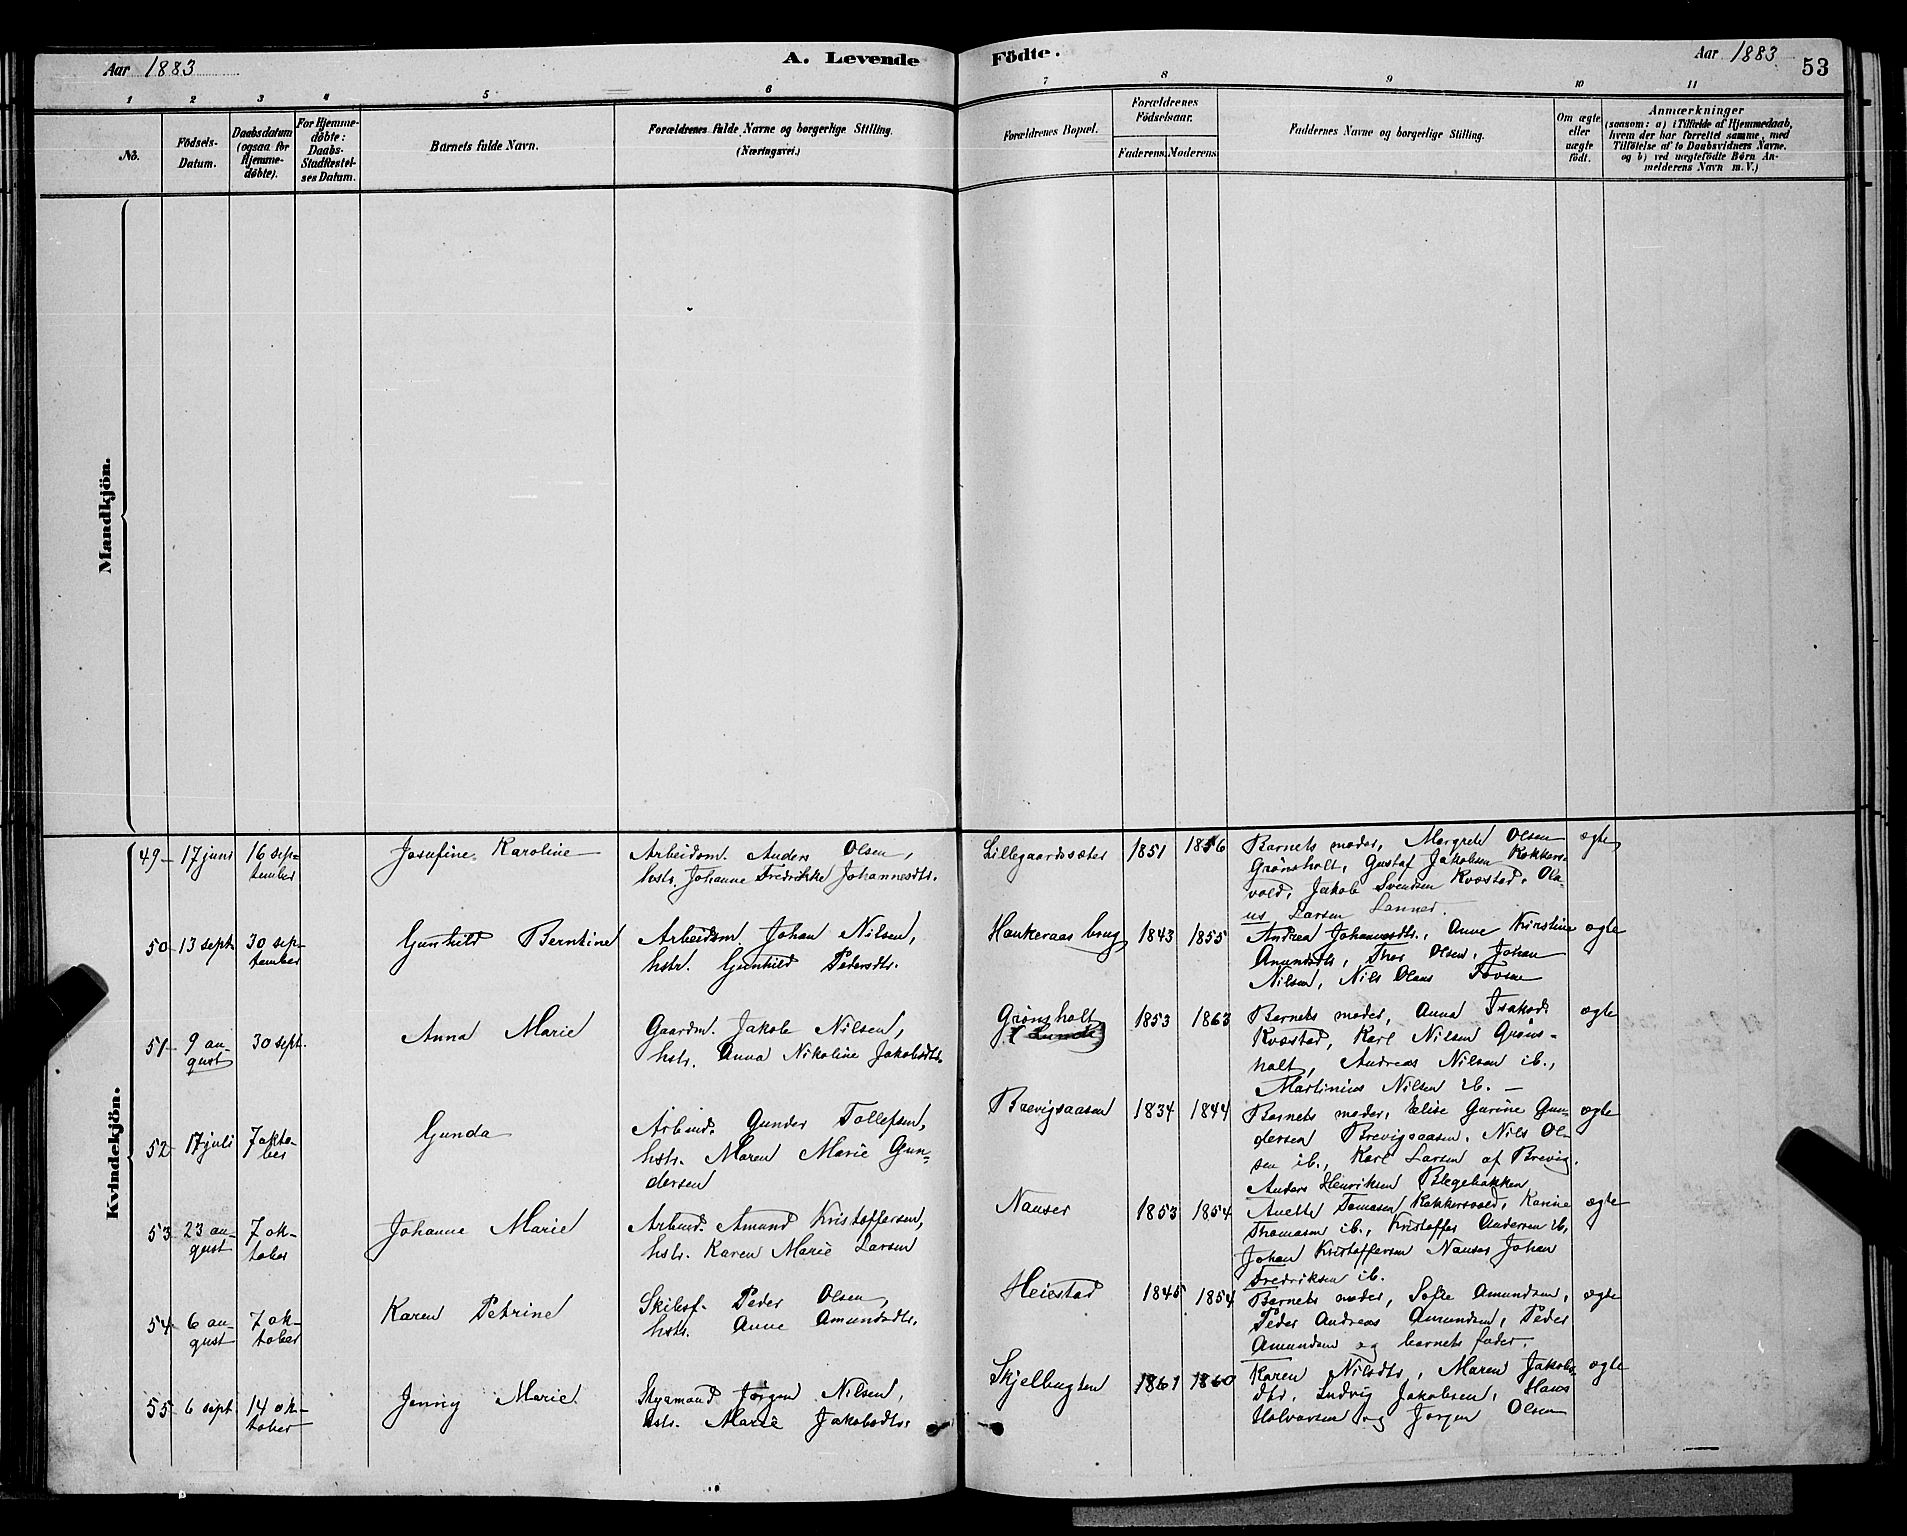 Aar 1883
A. Levende Födte.
Aar 1883
53
1 2 3 4 5 6 7 8 9 10 11
No.
Födsels-Datum.
Daabsdatum (ogsaa for Hjemme-döbte).
For Hjemme-döbte: Daabs-Stadfæstel-ses Datum.
Barnets fulde Navn.
Forældrenes fulde Navne og borgerlige Stilling.
(Næringsvei.)
Forældrenes Bopæl.
Forældrenes Födselsaar.
Faderens. Moderens.
Faddernes Navne og borgerlige Stilling.
Om ægte eller uægte födt.
Anmærkninger
(saasom: a) i Tilfælde af Hjemmedaab,
hvem der har forrettet samme, med
Tilföielse af to Daabsvidners Navne.
og b) ved uægtefödte Börn An-
melderens Navn m. V.)
Mandkjön.
Kvindekjön.
49 17 juni 16 sep-tember
Josefine Karoline
Arbeidsm. Anders Olsen,
hstr. Johanne Fredrikke Johannesdtr.
Lillegaardssæter 1851 1856
Barnets moder, Margrete Olsen
Grönsholt, Gustaf Jakobsen Kokkers-
vold, Jakob Svendsen Kvæstad, Ola-
us Larsen Lanner.
ægte
50 13 sept. 30 sep-tember
Gunhild Berntine
Arbeidsm. Johan Nilsen,
hstr. Gunhild Pedersdtr.
Haukeraas brug 1843 1855
Andrea Johannesdtr., Anne Kirstine
Amundsdtr, Thor Olsen, Johan
Nilsen, Nils Olaus Tovsen
ægte
51 9 au-gust 30 sept.
Anna Marie
Gaardm. Jakob Nilsen,
hstr. Anna Nikoline Jakobsdtr.
Grönsholt 1853 1863
Barnets moder, Anna Isaksd.
Kvæstad, Karl Nilsen Gröns-
holt, Andreas Nilsen ib.,
Martinius Nilsen ib. –
ægte
52 17 juli 7 okto-ber
Gunda
Arbeid. Gunder Tollefsen,
hstr. Maren Marie Gun-
dersen
Brevigsaasen 1834 1844
Barnets moder, Elise Gurine Gun-
dersen Brevigsaasen, Nils Ol-
sen ib., Karl Larsen af Brevig.
Anders Henriksen Blegebakken
ægte
53 23 au-gust 7 ok-tober
Johanne Marie
Arbeid. Amund Kristoffersen,
hstr. Karen Marie Larsen
Nauser 1853 1854
Anette Tomasen Kokkersvold, Karine
Thomasen ib., Kristoffer Andersen ib,
Johan Kristoffersen Nauser Johan
Fredriksen ib.
ægte
54 6 au-gust 7 ok-tober
Karen Petrine
Skibsf. Peder Olsen,
hstr. Anne Amundsdtr.
Heiestad 1845 1854
Barnets moder, Sofie Amundsen,
Peder Andreas Amundsen, Peder
Amundsen og barnets fader.
ægte
55 6 sept 14 ok-tober
Jenny Marie
Styrmand Jörgen Nilsen,
hstr. Marie Jakobsdtr.
Skjelbugten 1861 1860
Karen Nilsdtr, Maren Jakobs-
dtr, Ludvig Jakobsen, Hans
Halvorsen og Jörgen Olsen
ægte